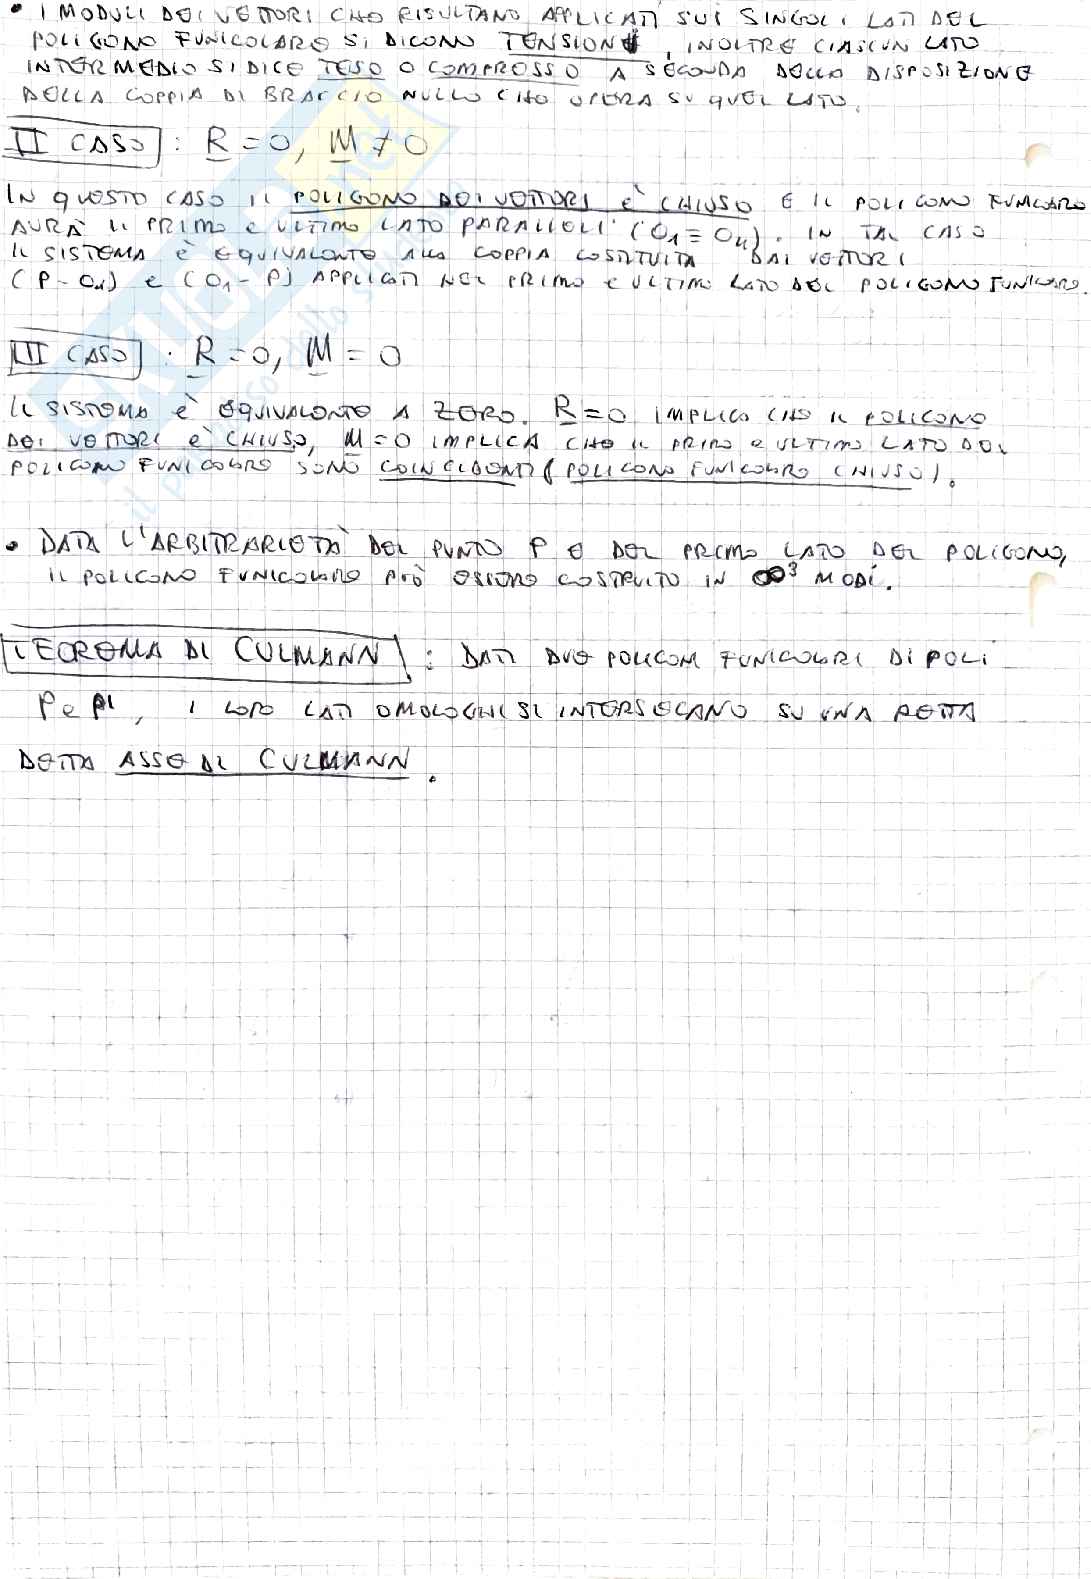 • I MODULI DEI VETTORI CHE RISULTANO APPLICATI SUI SINGOLI LATI DEL
POLIGONO FUNICOLARE SI DICONO TENSIONI, INOLTRE CIASCUN LATO
INTERMEDIO SI DICE TESO O COMPRESSO A SECONDA DELLA DISPOSIZIONE
DELLA COPPIA DI BRACCIO NULLO CHE OPERA SU QUEL LATO.
II CASO : R = 0, M ≠ 0
IN QUESTO CASO IL POLIGONO DEI VETTORI È CHIUSO E IL POLIGONO FUNICOLARE
AVRÀ IL PRIMO E ULTIMO LATO PARALLELI (O1 ≡ On). IN TAL CASO
IL SISTEMA È EQUIVALENTE ALLA COPPIA COSTITUITA DAI VETTORI
(P - On) E (O1 - P) APPLICATI NEL PRIMO E ULTIMO LATO DEL POLIGONO FUNICOLARE.
III CASO : R = 0, M = 0
IL SISTEMA È EQUIVALENTE A ZERO. R = 0 IMPLICA CHE IL POLIGONO
DEI VETTORI È CHIUSO, M = 0 IMPLICA CHE IL PRIMO E ULTIMO LATO DEL
POLIGONO FUNICOLARE SONO COINCIDENTI (POLIGONO FUNICOLARE CHIUSO).
• DATA L'ARBITRARIETÀ DEL PUNTO P E DEL PRIMO LATO DEL POLIGONO,
IL POLIGONO FUNICOLARE PUÒ ESSERE COSTRUITO IN ∞³ MODI.
TEOREMA DI CULMANN : DATI DUE POLIGONI FUNICOLARI DI POLI
P e P', I LORO LATI OMOLOGHI SI INTERSECANO SU UNA RETTA
DETTA ASSE DI CULMANN.